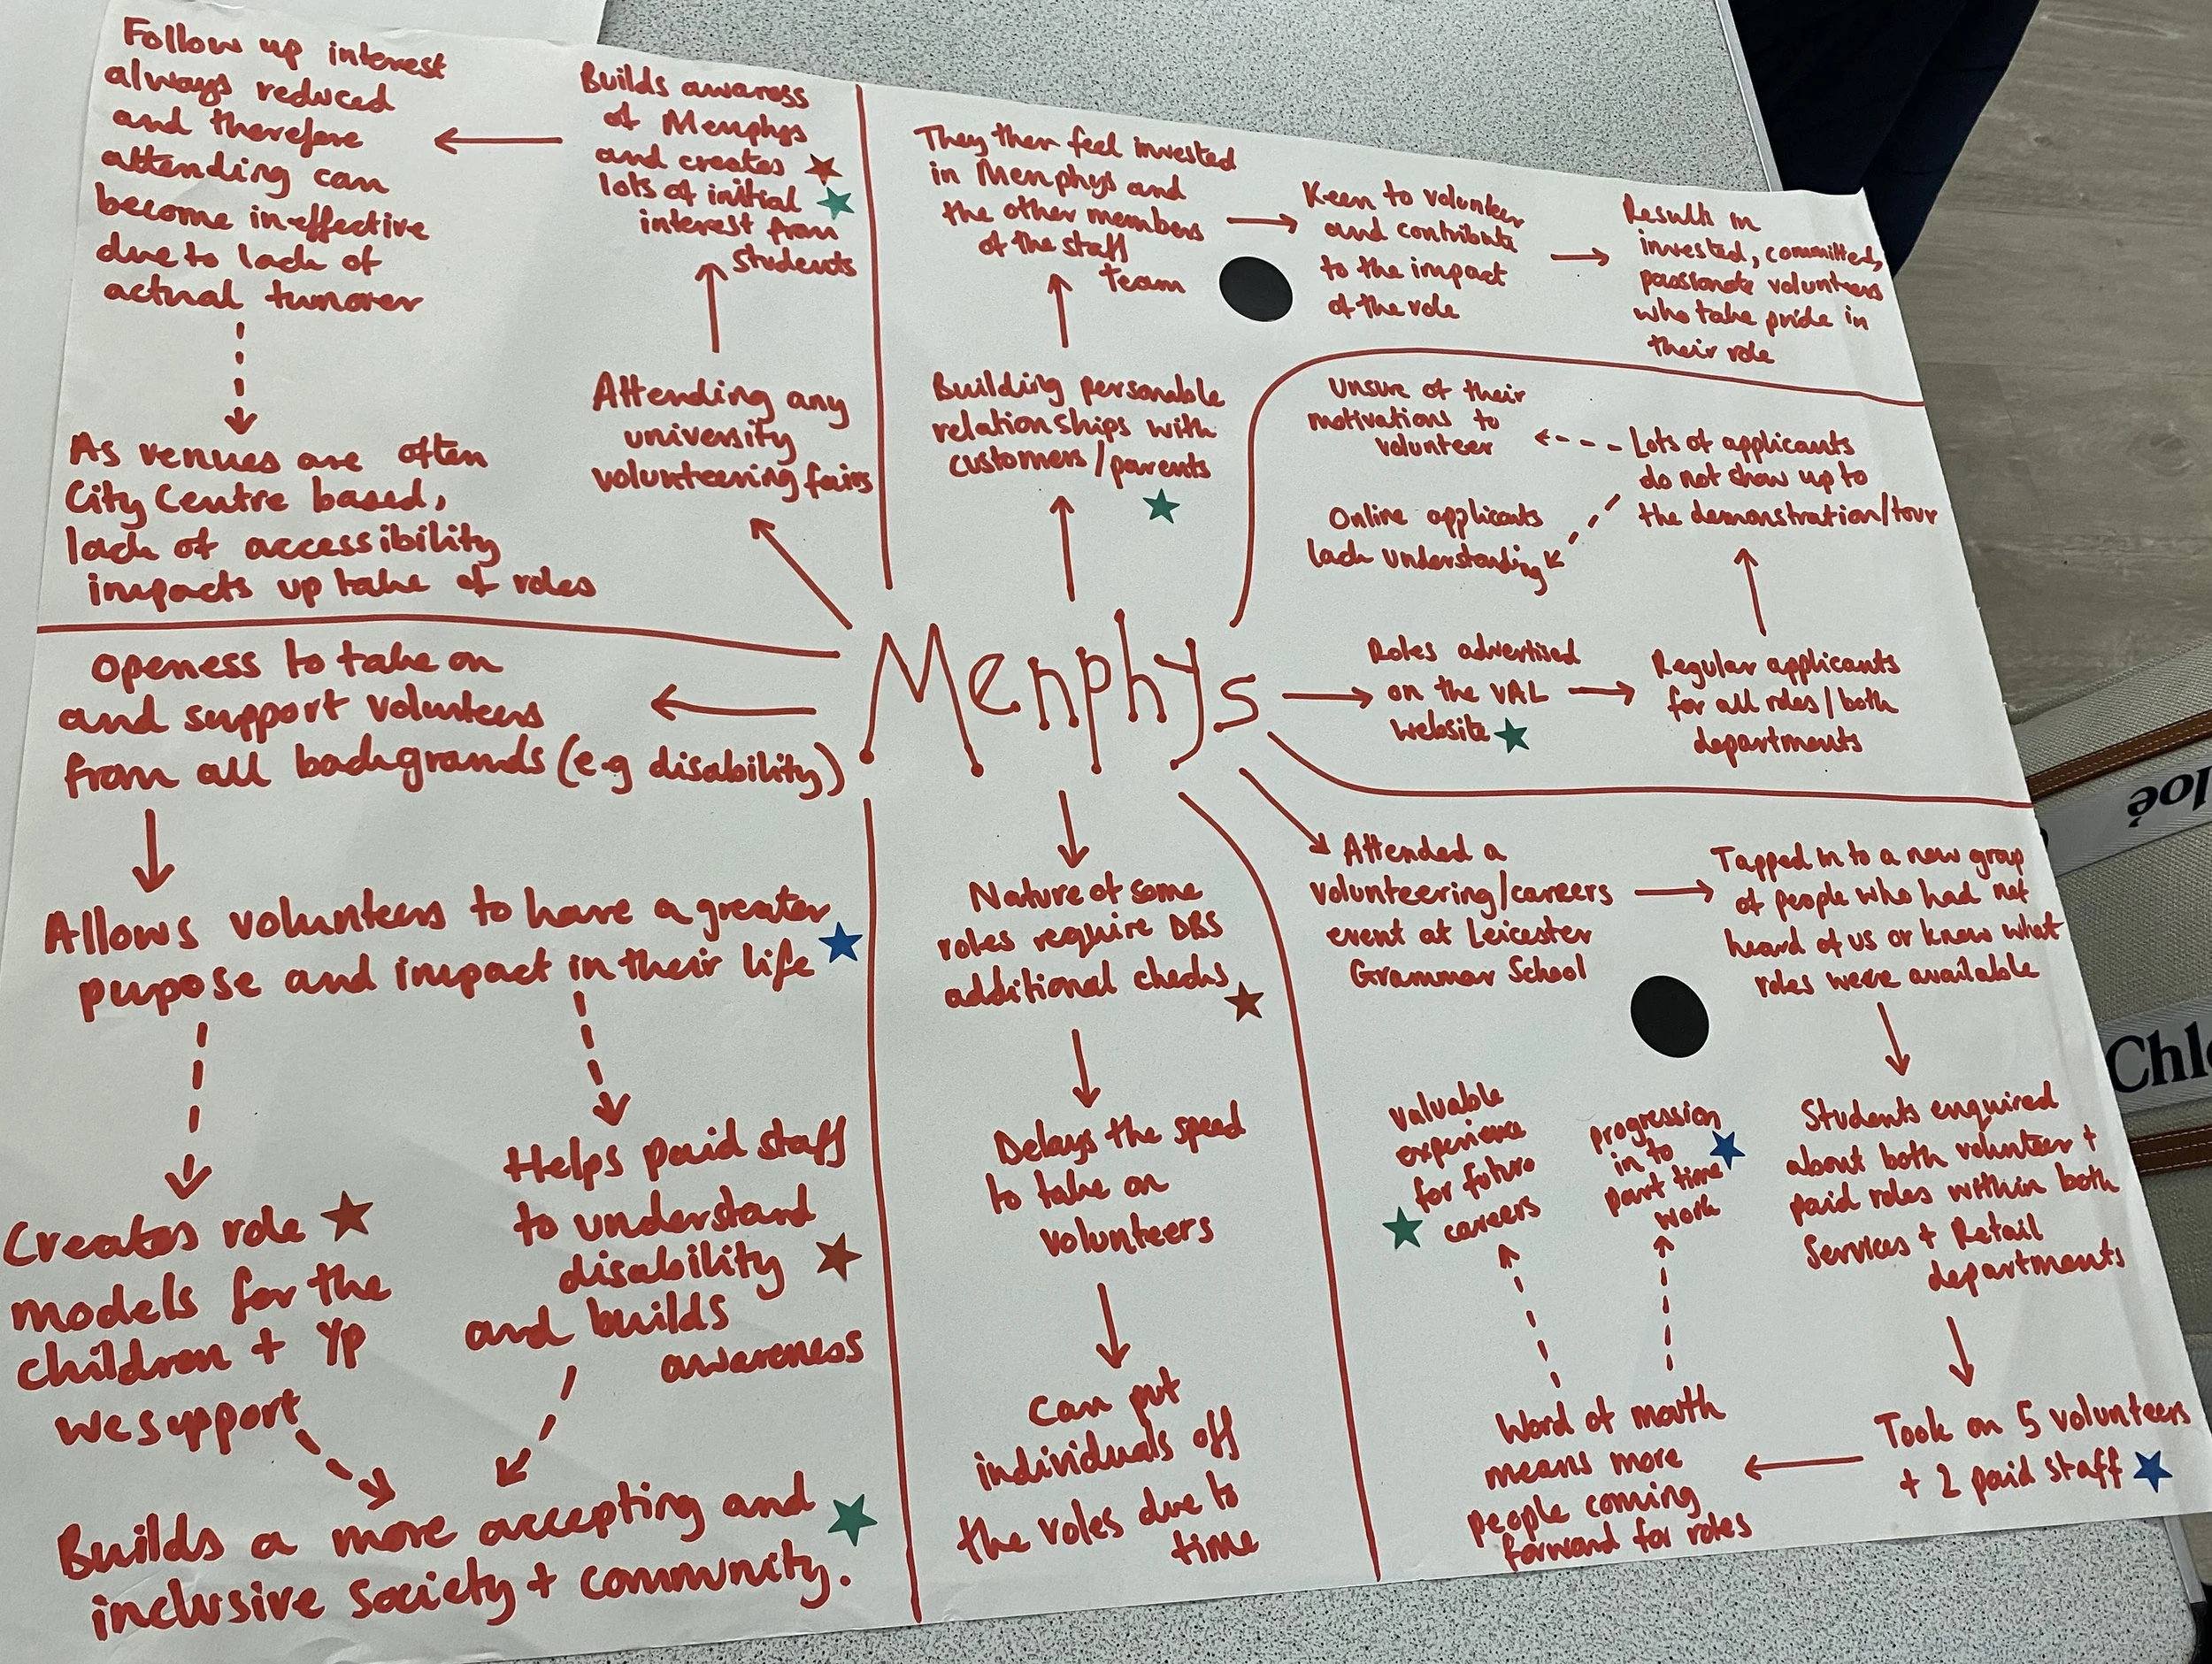 Follow up interest
always reduced
and therefore
attending can
become ineffective
due to lack of
actual turnover
As venues are often
City Centre based,
lack of accessibility
impacts up take of roles
Builds awaress
of Menphys
and creates
lots of initial
interest from
students
Attending any
university
volunteering fairs
They then feel invested
in Menphys and
the other members
of the staff
team
Building personable
relationships with
customers/parents
Keen to volunteer
and contribute
to the impact
of the role
Results in
invested, committed,
passionate volunteers
who take pride in
their role
Unsure of their
motivations to
volunteer
Online applicants
lack understanding
Lots of applicants
do not show up to
the demonstration/tour
Menphys
Roles advertised
on the VAL
website
Regular applicants
for all roles/both
departments
Openess to take on
and support volunteers
from all backgrounds (e.g disability)
Allows volunteers to have a greater
pupose and impact in their life
Creates role
models for the
children + YP
we support
Helps paid staff
to understand
disability
and builds
awareness
Builds a more accepting and
inclusive society + community.
Nature of some
roles require DBS
additional checks
Delays the speed
to take on
volunteers
Can put
individuals off
the roles due to
time
Attended a
volunteering/careers
event at Leicester
Grammar School
Tapped in to a new group
of people who had not
heard of us or know what
roles were available
Students enquired
about both volunteer +
paid roles within both
Services + Retail
departments
Took on 5 volunteers
+ 2 paid staff
Word of mouth
means more
people coming
forward for roles
valuable
experience
for future
careers
progression
in to
part time
work
loé
Chl